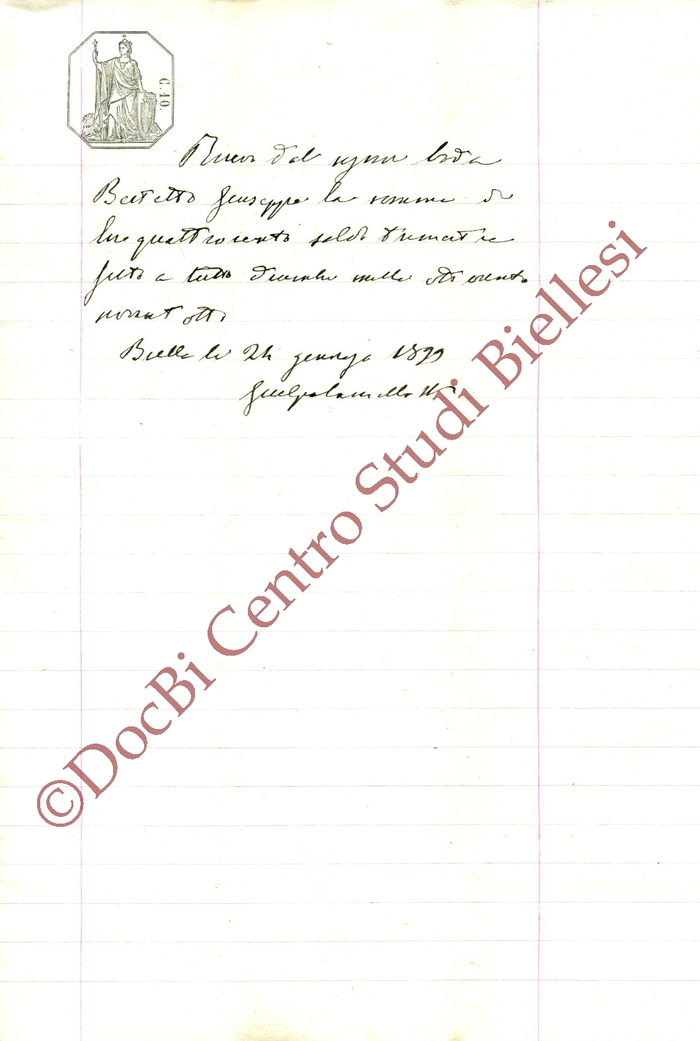 C. 10.
Ricevo dal signor Boda
Bertetto Giuseppe la somma di
lire quattrocento saldo
fitto a tutto dicembre mille otto cento
novant otto
Biella li 24 gennajo 1899
©DocBi Centro Studi Biellesi